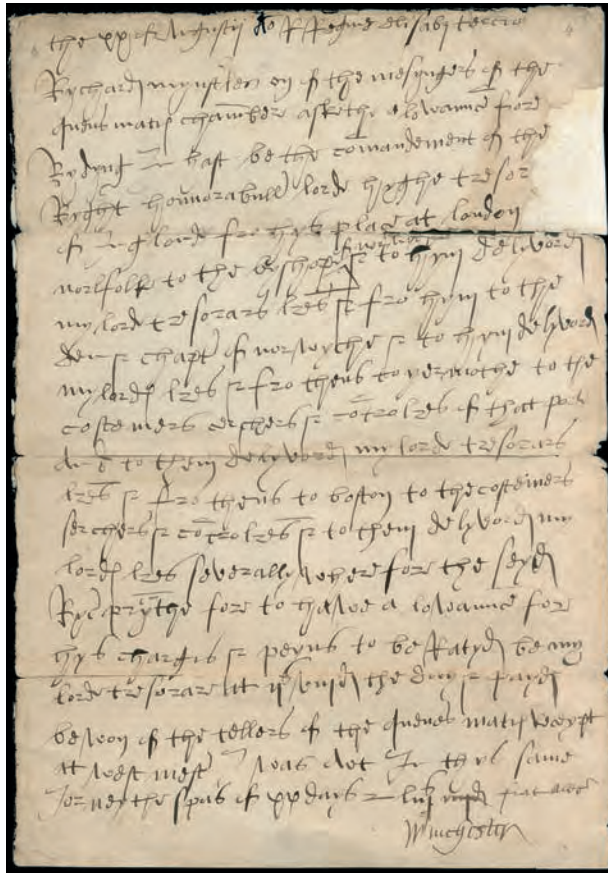 the xx of Augustij Ao R Regine elisabz tercio
Rychard mynsten on of the mesyngers of the
quens matis chamber askethe alowaunce fore
Rydyng In hast be the comandement of the
Ryght honnorabull lorde hyghe tresor
of Inglonde fro hys place at london
norlfolk to the bysshope to hym delyverd
my lorde tresorars lres & fro hym to the
den & chapt of norwythe & to hym delyverd
my lords lres & fro thens to yermothe to the
costemers serchers & cotrolres of that port
and to them delyverd my lorde tresorars
lres & fro thens to boston to the costemers
serchers & cotrolres & to them delyverd my
lords lres severally wherefore the seyd
Ryc prythe fore to have a lowaunce for
hys chargis & peyns to be Ratyd be my
lorde tresorare at the day & payd
be won of the tellers of the quenes matis receypt
at west mest I was out In thys same
Jorney the spas of xx days
Winchester